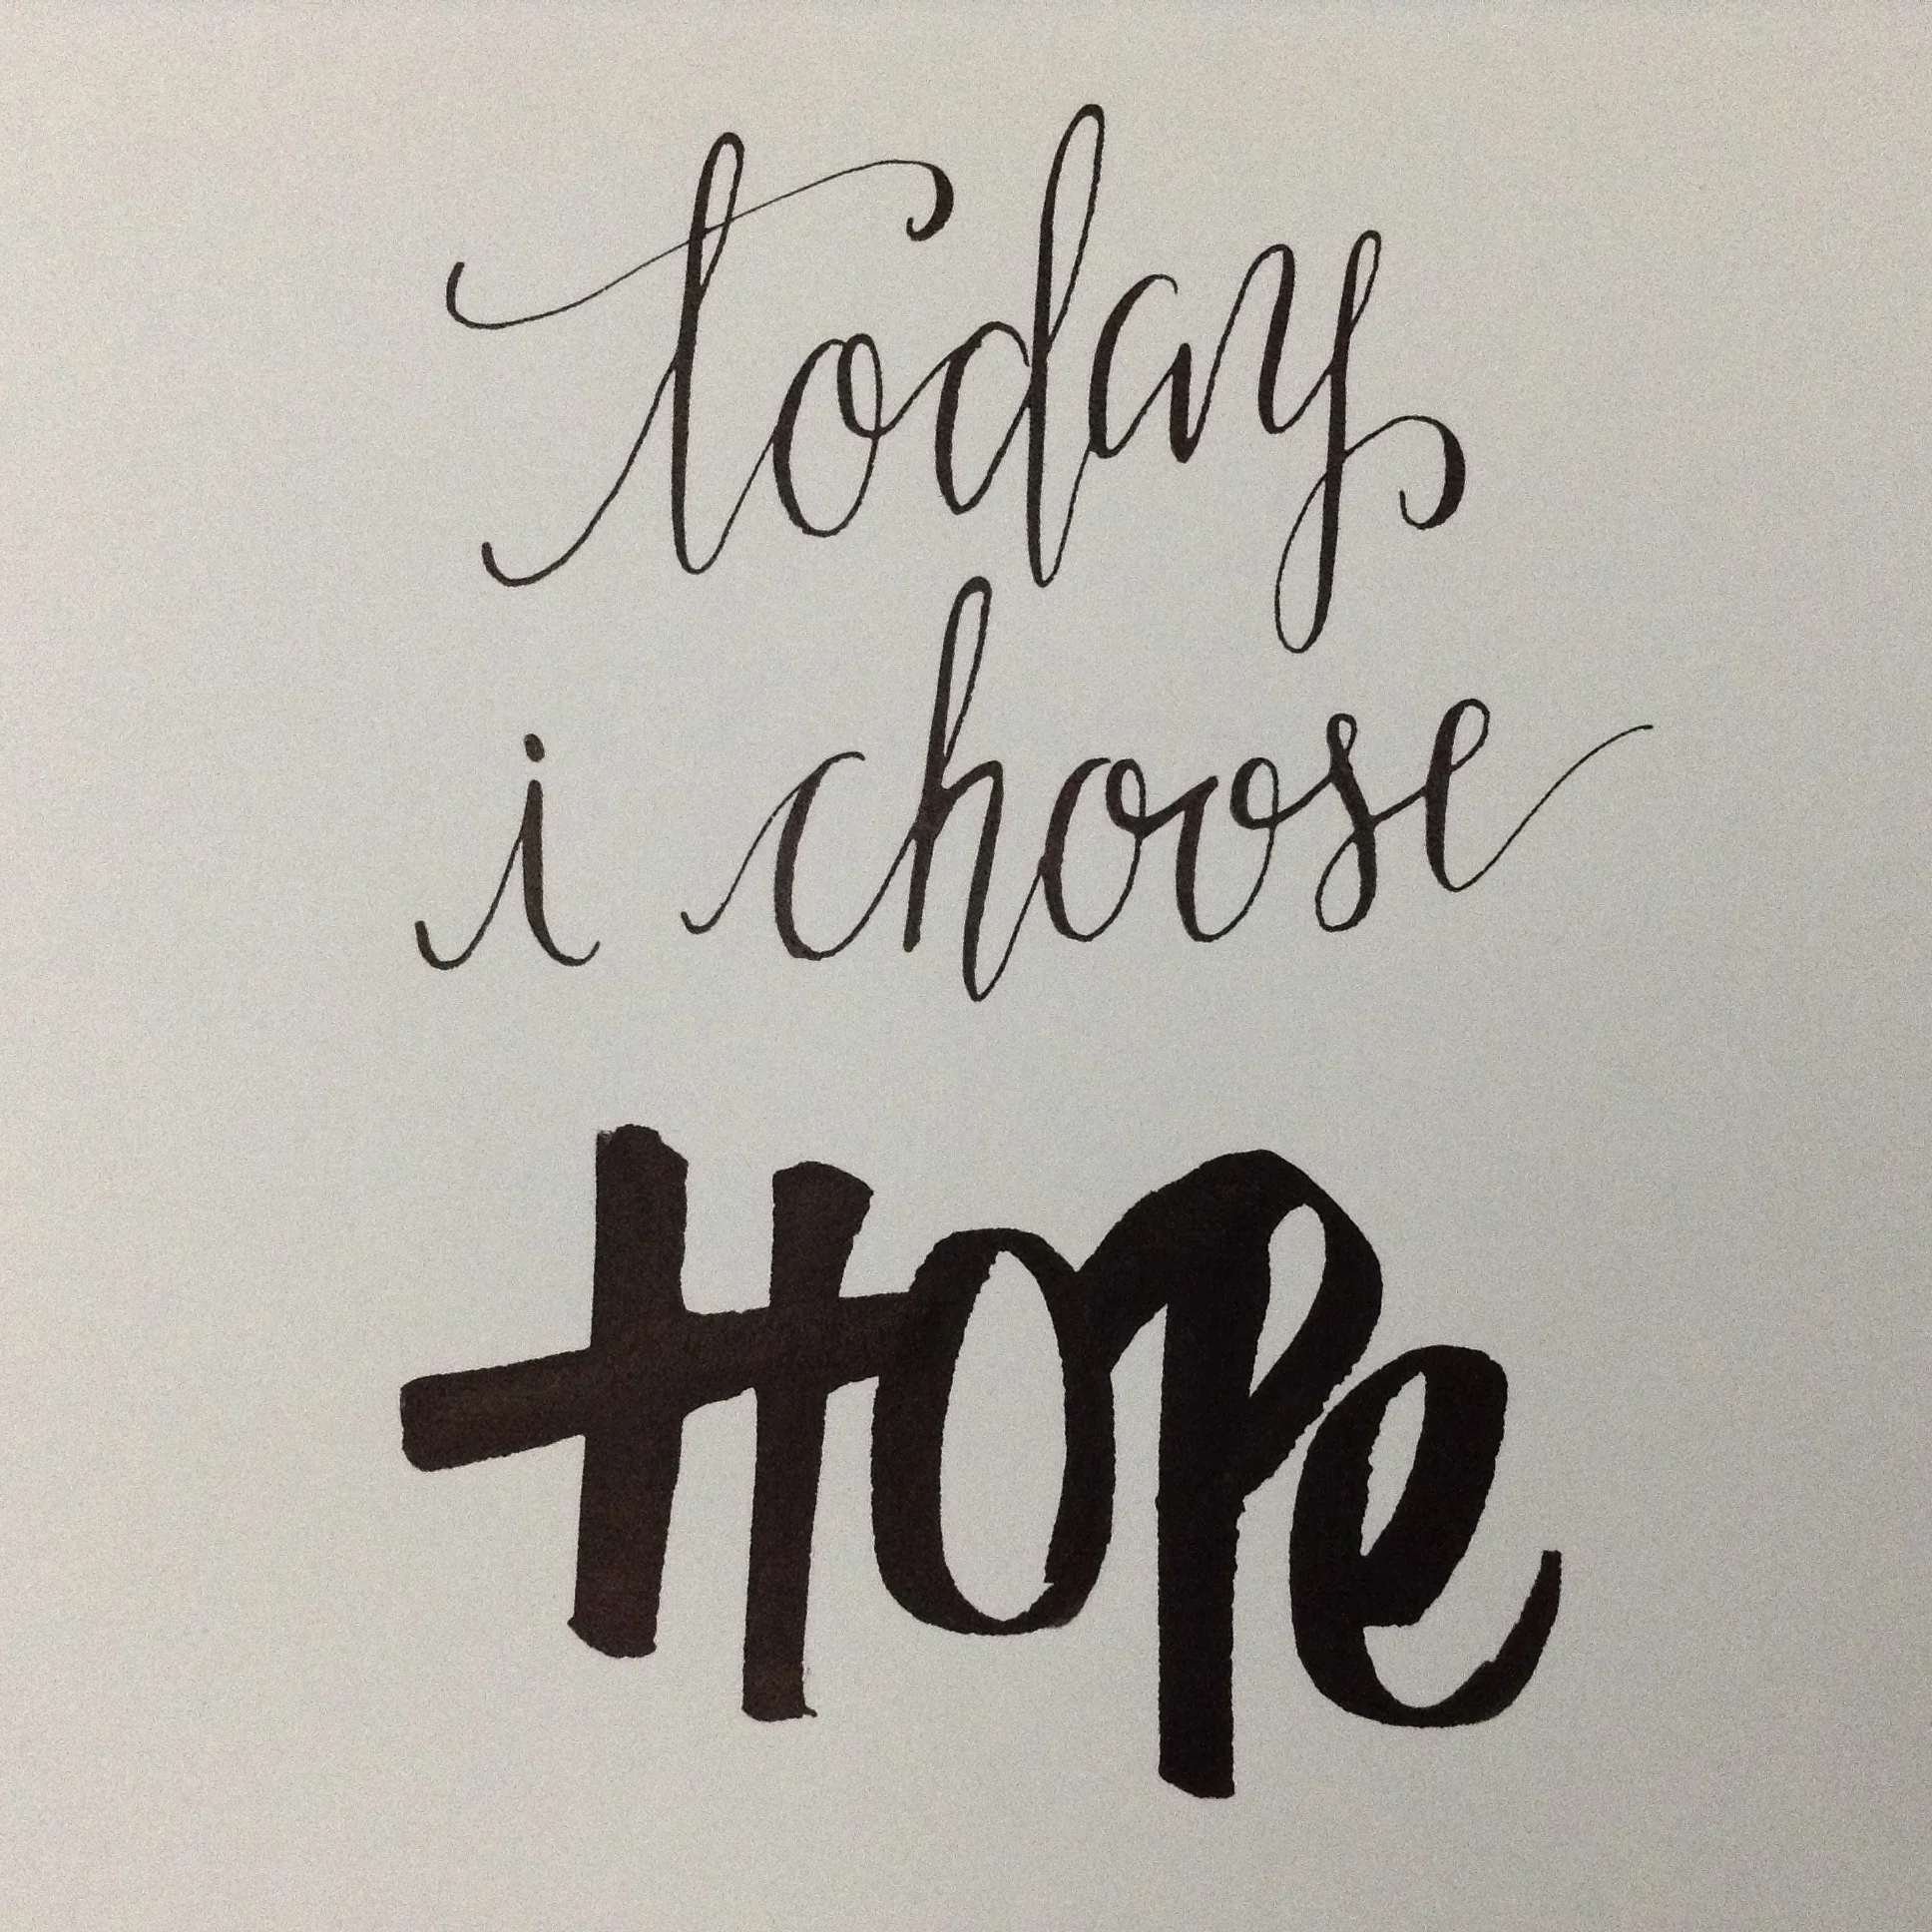 today
i choose
HOPe